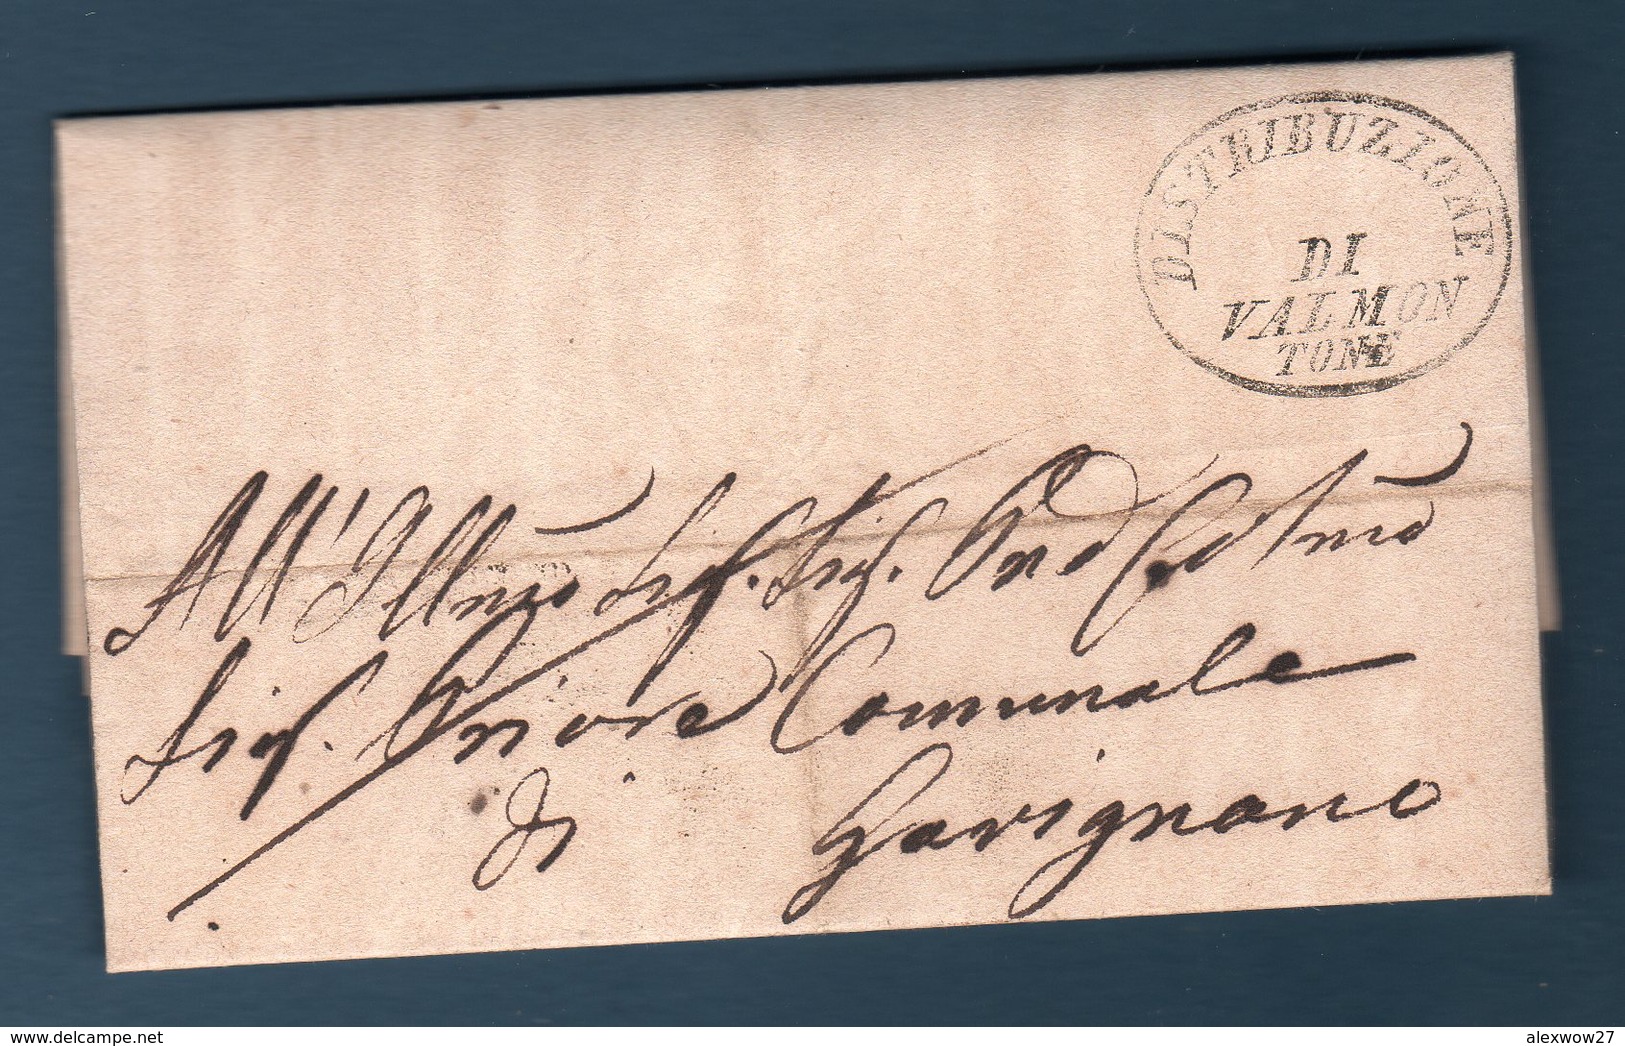 DISTRIBUZIONE
DI
VALMON
TONE
All'Illmo Sig. Sig. Pne Colmo
Sig. Priore Comunale
di Gavignano
alexwow27